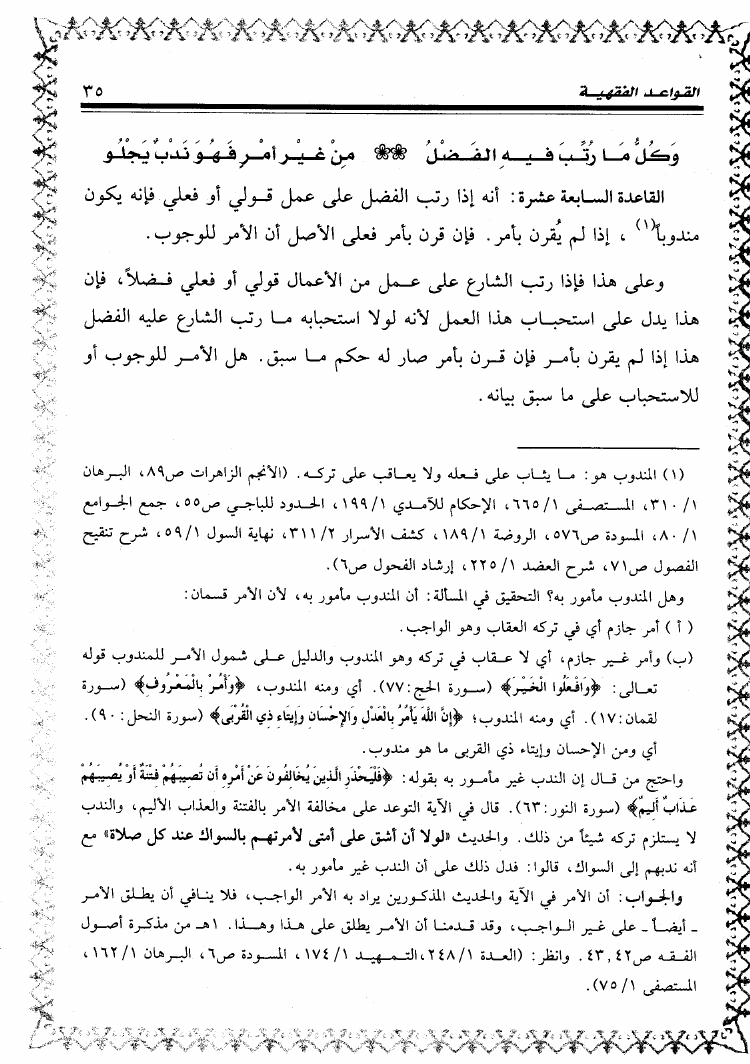 القواعد الفقهية ٣٥
وَكُلُّ مَا رُتِّبَ فِيهِ الفَضْلُ ❀❀ مِنْ غَيْرِ أمْرٍ فَهُوَ نَدْبٌ يَجْلُو
القاعدة السابعة عشرة: أنه إذا رتب الفضل على عمل قولي أو فعلي فإنه يكون
مندوباً(١) ، إذا لم يُقرن بأمر. فإن قرن بأمر فعلى الأصل أن الأمر للوجوب.
وعلى هذا فإذا رتب الشارع على عمل من الأعمال قولي أو فعلي فضلاً، فإن
هذا يدل على استحباب هذا العمل لأنه لولا استحبابه ما رتب الشارع عليه الفضل
هذا إذا لم يقرن بأمر فإن قرن بأمر صار له حكم ما سبق. هل الأمر للوجوب أو
للاستحباب على ما سبق بيانه.
(١) المندوب هو: ما يثاب على فعله ولا يعاقب على تركه. (الأنجم الزاهرات ص٨٩، البرهان
١/ ٣١٠، المستصفى ١/ ٦٦٥، الإحكام للآمدي ١/ ١٩٩، الحدود للباجي ص٥٥، جمع الجوامع
١/ ٨٠، المسودة ص٥٧٦، الروضة ١/ ١٨٩، كشف الأسرار ٢/ ٣١١، نهاية السول ١/ ٥٩، شرح تنقيح
الفصول ص٧١، شرح العضد ١/ ٢٢٥، إرشاد الفحول ص٦).
وهل المندوب مأمور به؟ التحقيق في المسألة: أن المندوب مأمور به، لأن الأمر قسمان:
( أ ) أمر جازم أي في تركه العقاب وهو الواجب.
(ب) وأمر غير جازم، أي لا عقاب في تركه وهو المندوب والدليل على شمول الأمر للمندوب قوله
تعالى: ﴿وَافْعَلُوا الْخَيْرَ﴾ (سورة الحج:٧٧). أي ومنه المندوب، ﴿وَأْمُرْ بِالْمَعْرُوفِ﴾ (سورة
لقمان:١٧). أي ومنه المندوب؛ ﴿إِنَّ اللَّهَ يَأْمُرُ بِالْعَدْلِ وَالإِحْسَانِ وَإِيتَاءِ ذِي الْقُرْبَى﴾ (سورة النحل:٩٠).
أي ومن الإحسان وإيتاء ذي القربى ما هو مندوب.
واحتج من قال إن الندب غير مأمور به بقوله: ﴿فَلْيَحْذَرِ الَّذِينَ يُخَالِفُونَ عَنْ أَمْرِهِ أَن تُصِيبَهُمْ فِتْنَةٌ أَوْ يُصِيبَهُمْ
عَذَابٌ أَلِيمٌ﴾ (سورة النور:٦٣). قال في الآية التوعد على مخالفة الأمر بالفتنة والعذاب الأليم، والندب
لا يستلزم تركه شيئاً من ذلك. والحديث «لولا أن أشق على أمتى لأمرتهم بالسواك عند كل صلاة» مع
أنه ندبهم إلى السواك، قالوا: فدل ذلك على أن الندب غير مأمور به.
والجواب: أن الأمر في الآية والحديث المذكورين يراد به الأمر الواجب، فلا ينافي أن يطلق الأمر
ـ أيضاً ـ على غير الواجب، وقد قدمنا أن الأمر يطلق على هذا وهذا. ١هـ من مذكرة أصول
الفقه ص٤٢,٤٣. وانظر: (العدة ١/ ٢٤٨، التمهيد ١/ ١٧٤، المسودة ص٦، البرهان ١/ ١٦٢،
المستصفى ١/ ٧٥).